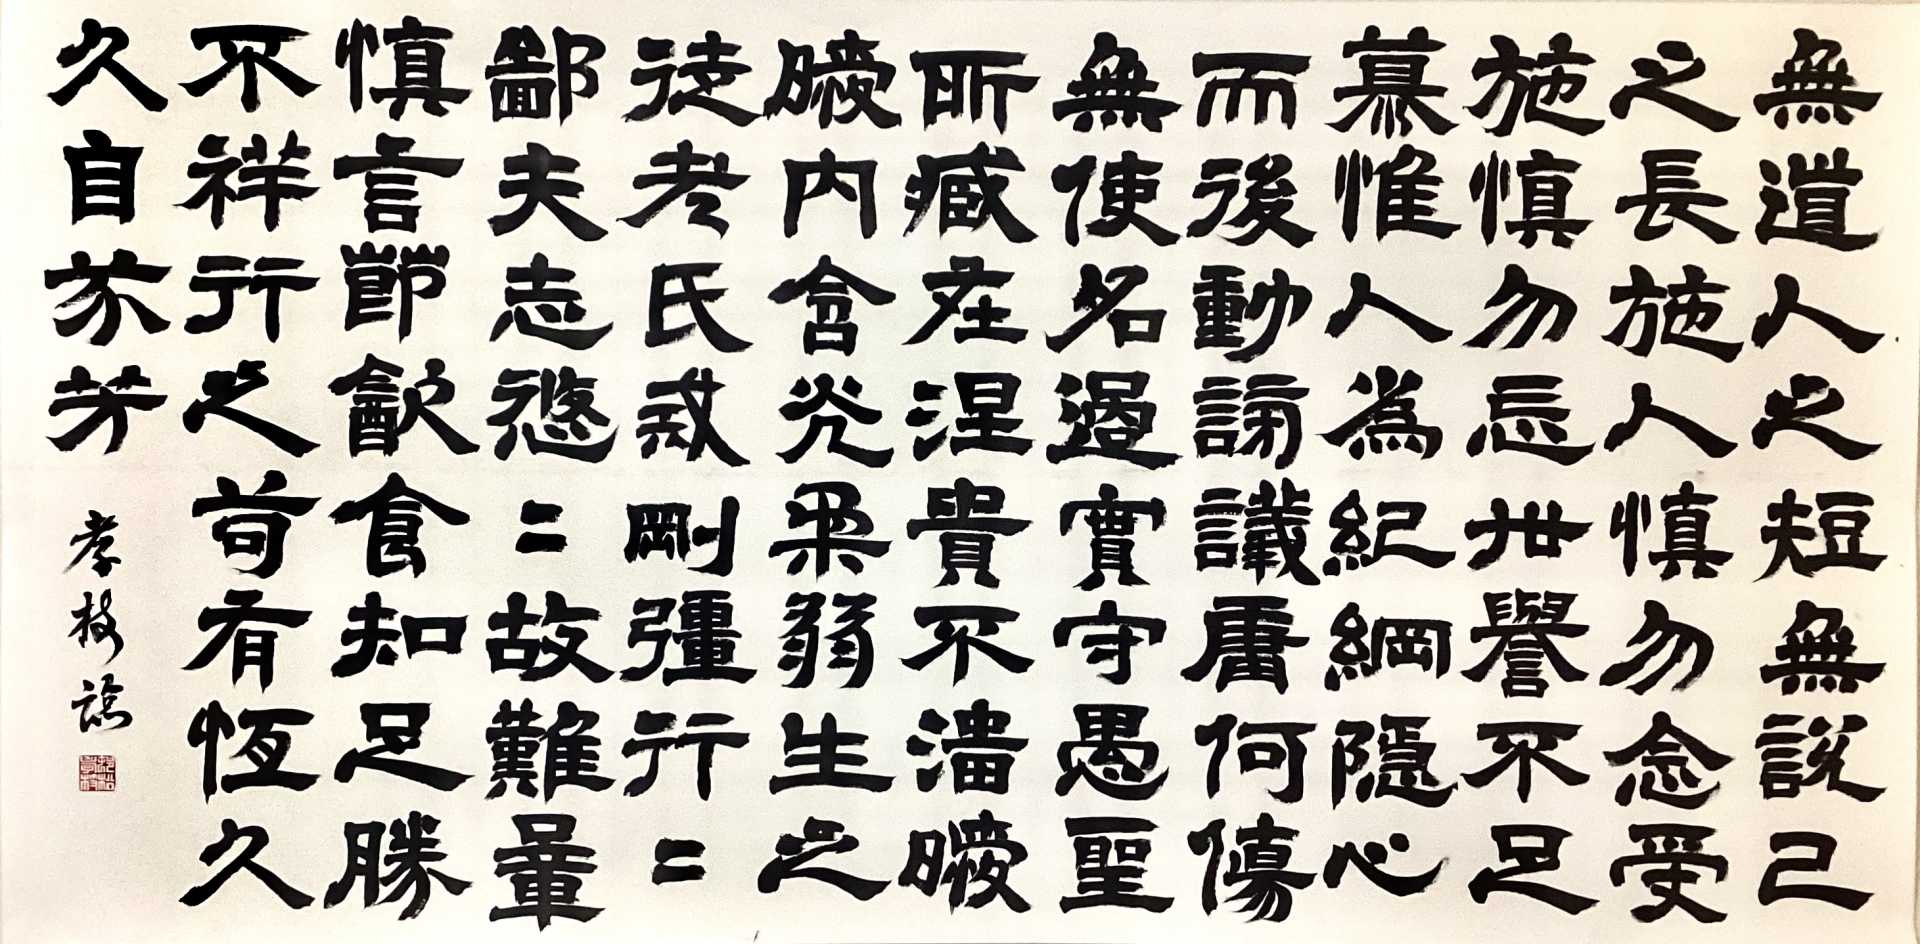 無道人之短無說己
之長施人慎勿念受
施慎勿忘世譽不足
慕惟人為紀綱隱心
而後動謗議庸何傷
無使名過實守愚聖
所臧在涅貴不淄曖
曖內含光柔弱生之
徒老氏戒剛彊行二
鄙夫志悠二故難量
慎言節飲食知足勝
不祥行之苟有恆久
久自芬芳
孝枝